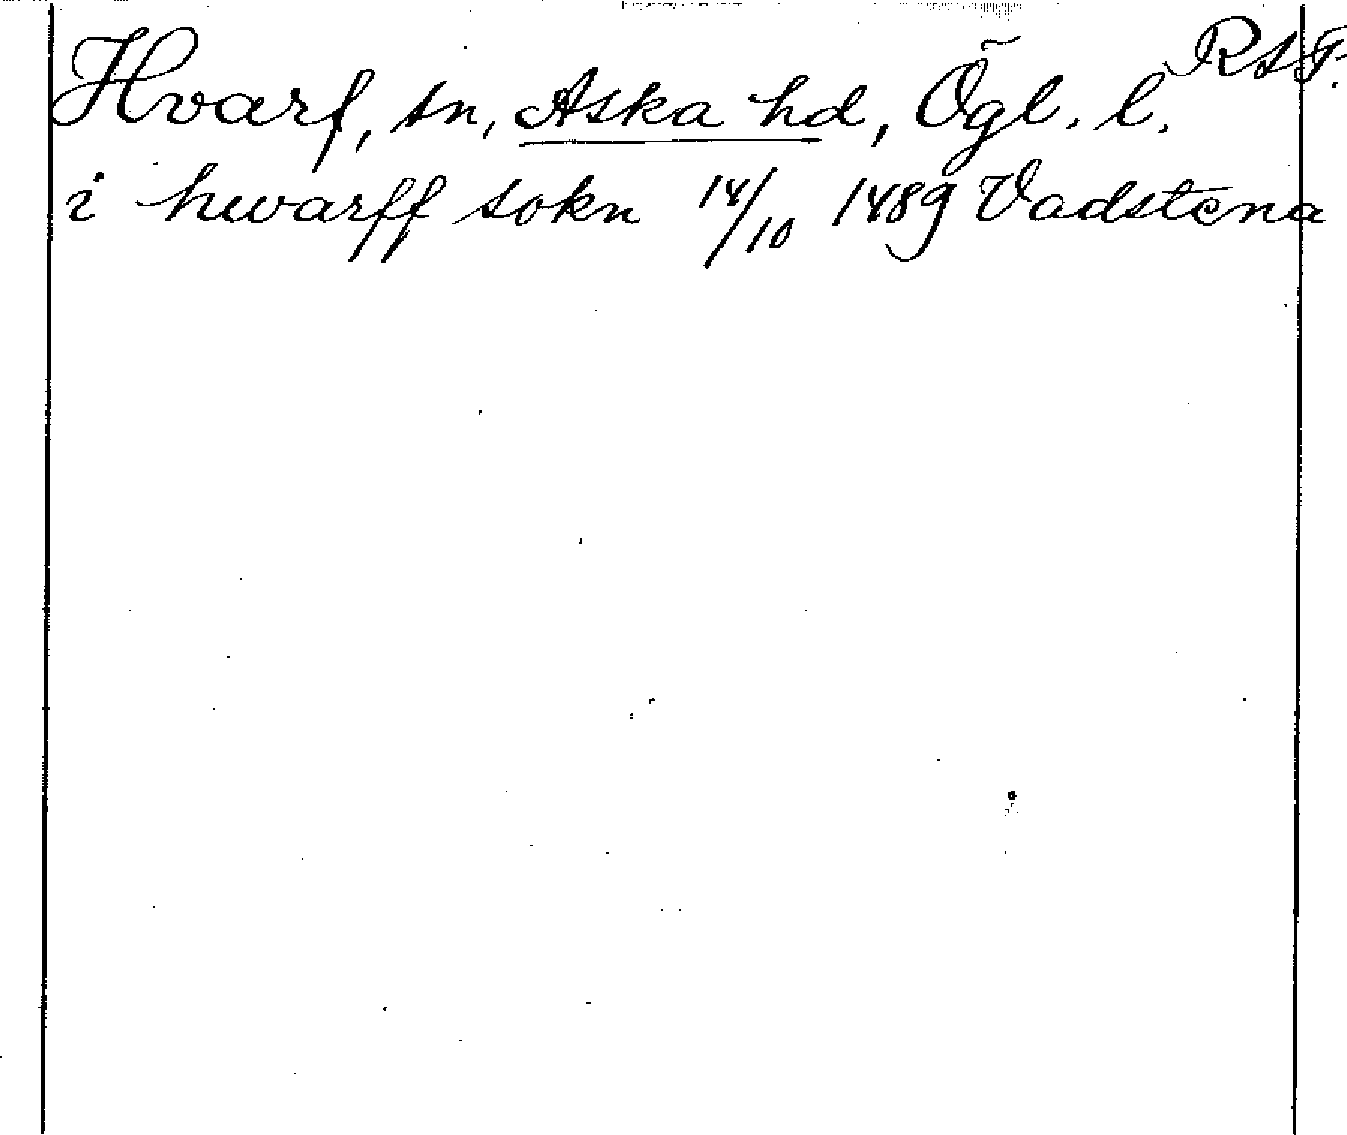 Hvarf, sn, Aska hd, Ögl. l. RAF.
i hwarff sokn 14/10 1489 Vadstena